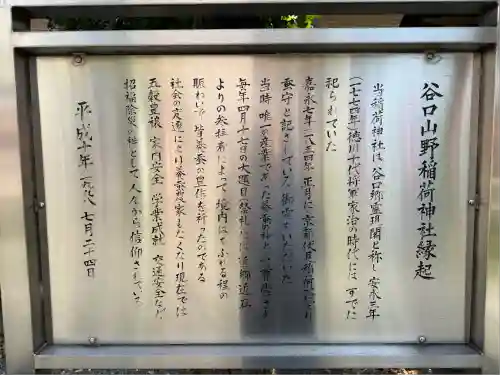 谷口山野稲荷神社縁起
当稲荷神社は 谷口郷霊項閣と称し 安永三年
(一七七四年)徳川十代将軍家治の時代には すでに
祀られていた
嘉永七年(一八五四年)正月に 京都伏見稲荷
蚕守と記されていた御霊をいただいた
当時 唯一の産業であった養蚕の神と
毎年四月十七日の大題目(祭礼)には 近郷近在
よりの参拝者によって 境内はあふれる程の
賑わいで 皆養蚕の豊作を祈ったのである
社会の変遷により養蚕農家もなくなり現在では
五穀豊穣 家内安全 学業成就 交通安全など
招福除災の神として 人々から信仰されている
平成十年(一九九八)七月二十四日